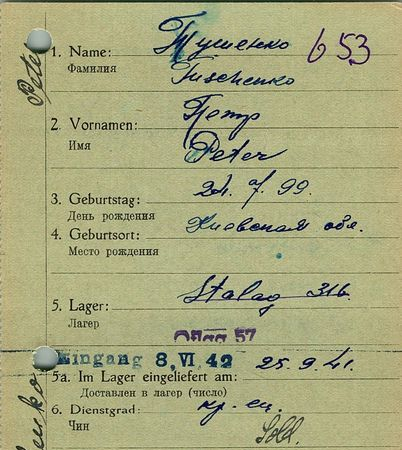 Тушенко
653
1. Name:
Фамилия
Tuschenko
Петр
2. Vornamen:
Имя
Peter
24. 7. 99.
3. Geburtstag:
День рождения
Киевская обл.
4. Geburtsort:
Место рождения
Stalag 316.
5. Lager:
Лагер
Oflag 57
Eingang 8. VI. 42
25. 9. 41.
5a. Im Lager eingeliefert am:
Доставлен в лагер (число)
6. Dienstgrad:
кр-ец
Чин
Sold.
Peter
enko